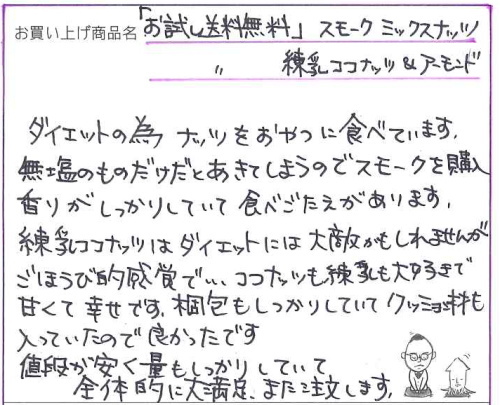 お買い上げ商品名 「お試し送料無料」スモークミックスナッツ
〃 練乳ココナッツ&アーモンド
ダイエットの為 ナッツをおやつに食べています.
無塩のものだけだとあきてしまうのでスモークを購入
香りがしっかりしていて食べごたえがあります.
練乳ココナッツはダイエットには大敵かもしれませんが
ごほうび的感覚で… ココナッツも練乳も大好きで
甘くて幸せです. 梱包もしっかりしていてクッション材も
入っていたので良かったです
値段が安く量もしっかりしていて
全体的に大満足、また注文します.